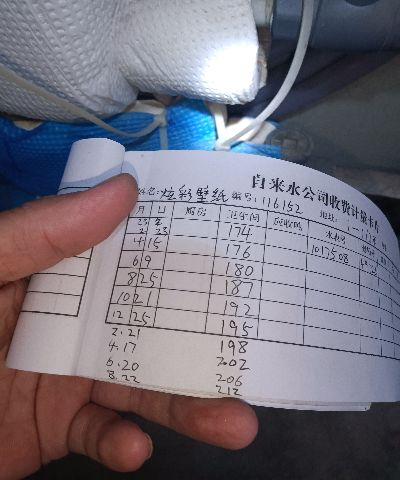 自来水公司收费计量卡片
姓名:炫彩壁纸 编号:116152 地址:
月 日 厨房 卫生间 应收吨 水表号
23年
2 23 174 1017508
4 15 176
6 9 180
8 25 187
10 21 192
12 25 195
2.21 198
4.17 202
6.20 206
8.22 212